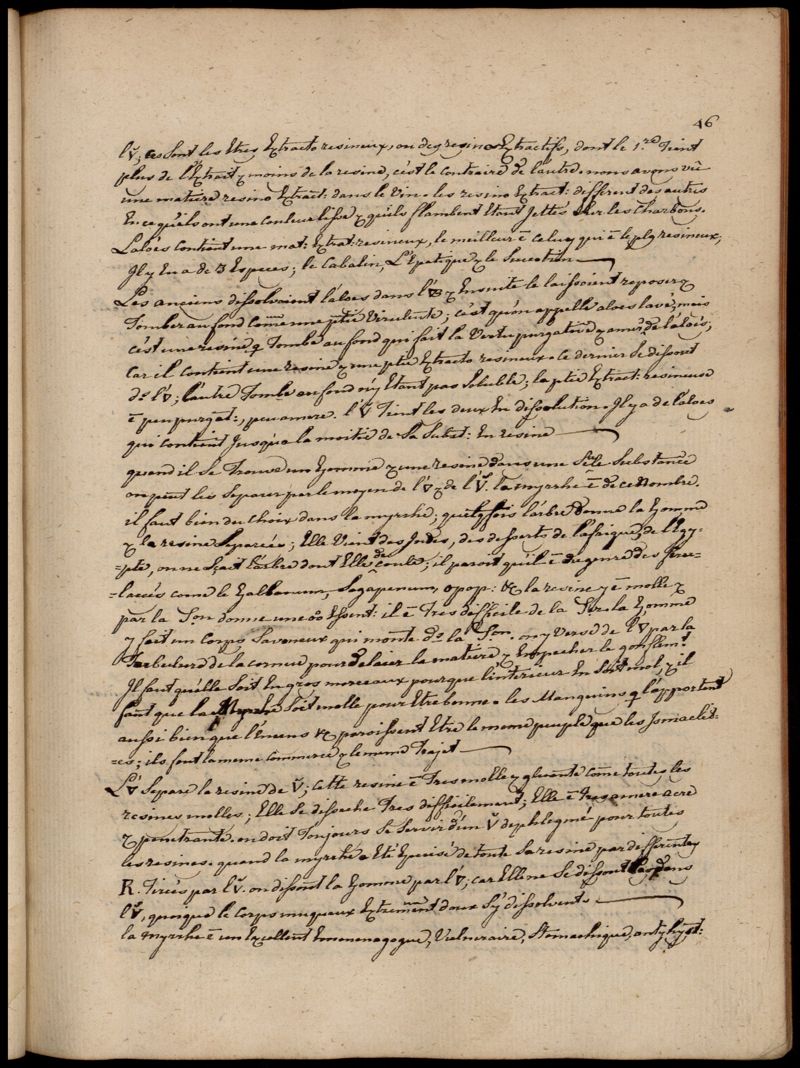 46
l'🜄; ce sont les Etres Extracto resineux, ou des resino Extractifs, dont le 1.er tient
plus de l'Extrait & moins de la resine, c'est le contraire de l'autre. nous avons vû
une matiere resino Extract: dans le Vin. les resino Extract: different des autres
En ce qu'ils ont une couleur lisse & qu'ils flambent Etant Jettés sur les charbons.
L'aloés contient une mat: Extract: resineux, le meilleur ē celuy qui ē le plus resineux,
Il y En a de 3 Especes; le Cabalin, L'Epatique & le Succotrin
Les anciens dissolvoient l'aloes dans l'🜄 & Ensuite le laissoient reposer &
Tomber au fond come une ptie virulente; c'est qu'on appelle aloes lavé; mais
c'est une resine q Tombe au fond qui fait la Vertu purgative & amere de l'aloés,
car il contient une resine & une ptie Extracto resineux. ce dernier se dissout
ds l'🜄; l'autre Tombe au fond n'y Etant pas soluble; la ptie Extract: resineuse
ē peu purgat:, peu amere. l'V Tient les deux En dissolution. Il y a de l'aloes
qui contient Jusqu'a la moitié de Sa Subst: En resine
quand il se Trouve un Gomme & une resine dans une Seule Substance
on peut les Separer par le moyen de l'🜄 & de l'V. la myrrhe ē de ce Nombre.
il faut bien du choix dans la myrrhe, quelqfois l'arbre Donne la Gomme
& la resine Separées; Elle Vient des Indes, des desserts de l'afrique, de l'Egy-
=pte, on ne scait l'arbre dont Elle decoule; il paroit qu'il ē du genre des
=lacées come le Galbanum, Sagapenum, opop: &c la resine y ē molle &
par la Don donne une oo Essent: il ē Tres difficile de la la Gomme
y fait un corps Savoneux qui monte ds la Don. on y Verse de l'🜄 par la
Tubulure de la cornue pour delaier la matiere & Empecher le gonflemt
Il faut qu'elle soit En gros morceaux pourque l'interieur En Soit mol, & il
faut que la Myrrhe soit molle pour Etre bonne. les Manguins q l'apportent
aussi bien que l'Encens &c paroissent Etre le meme peuple que les Ismaelit-
=es; ils font le meme commerce & le meme Trajet
L'🜄 Separe la resine de V; cette resine ē Tres molle & gluente come toutes les
resines molles; Elle se disseche Tres difficilement; Elle ē Tres amere acre
& penetrante. on doit Toujours se Servir d'un V dephlegmé pour toutes
les resines. quand la myrrhe a Eté Epuisé de toute Sa resine par differentes
R. Tirées par l'V. on dissout la Gomme par l'🜄, car Elle ne se dissout pas dans
l'V, quoique le corps muqueux Extremement doux s'y dissolvent.
la myrrhe ē un Excellent Emenagogue, Vulneraire, Stomachique, antyhyst: